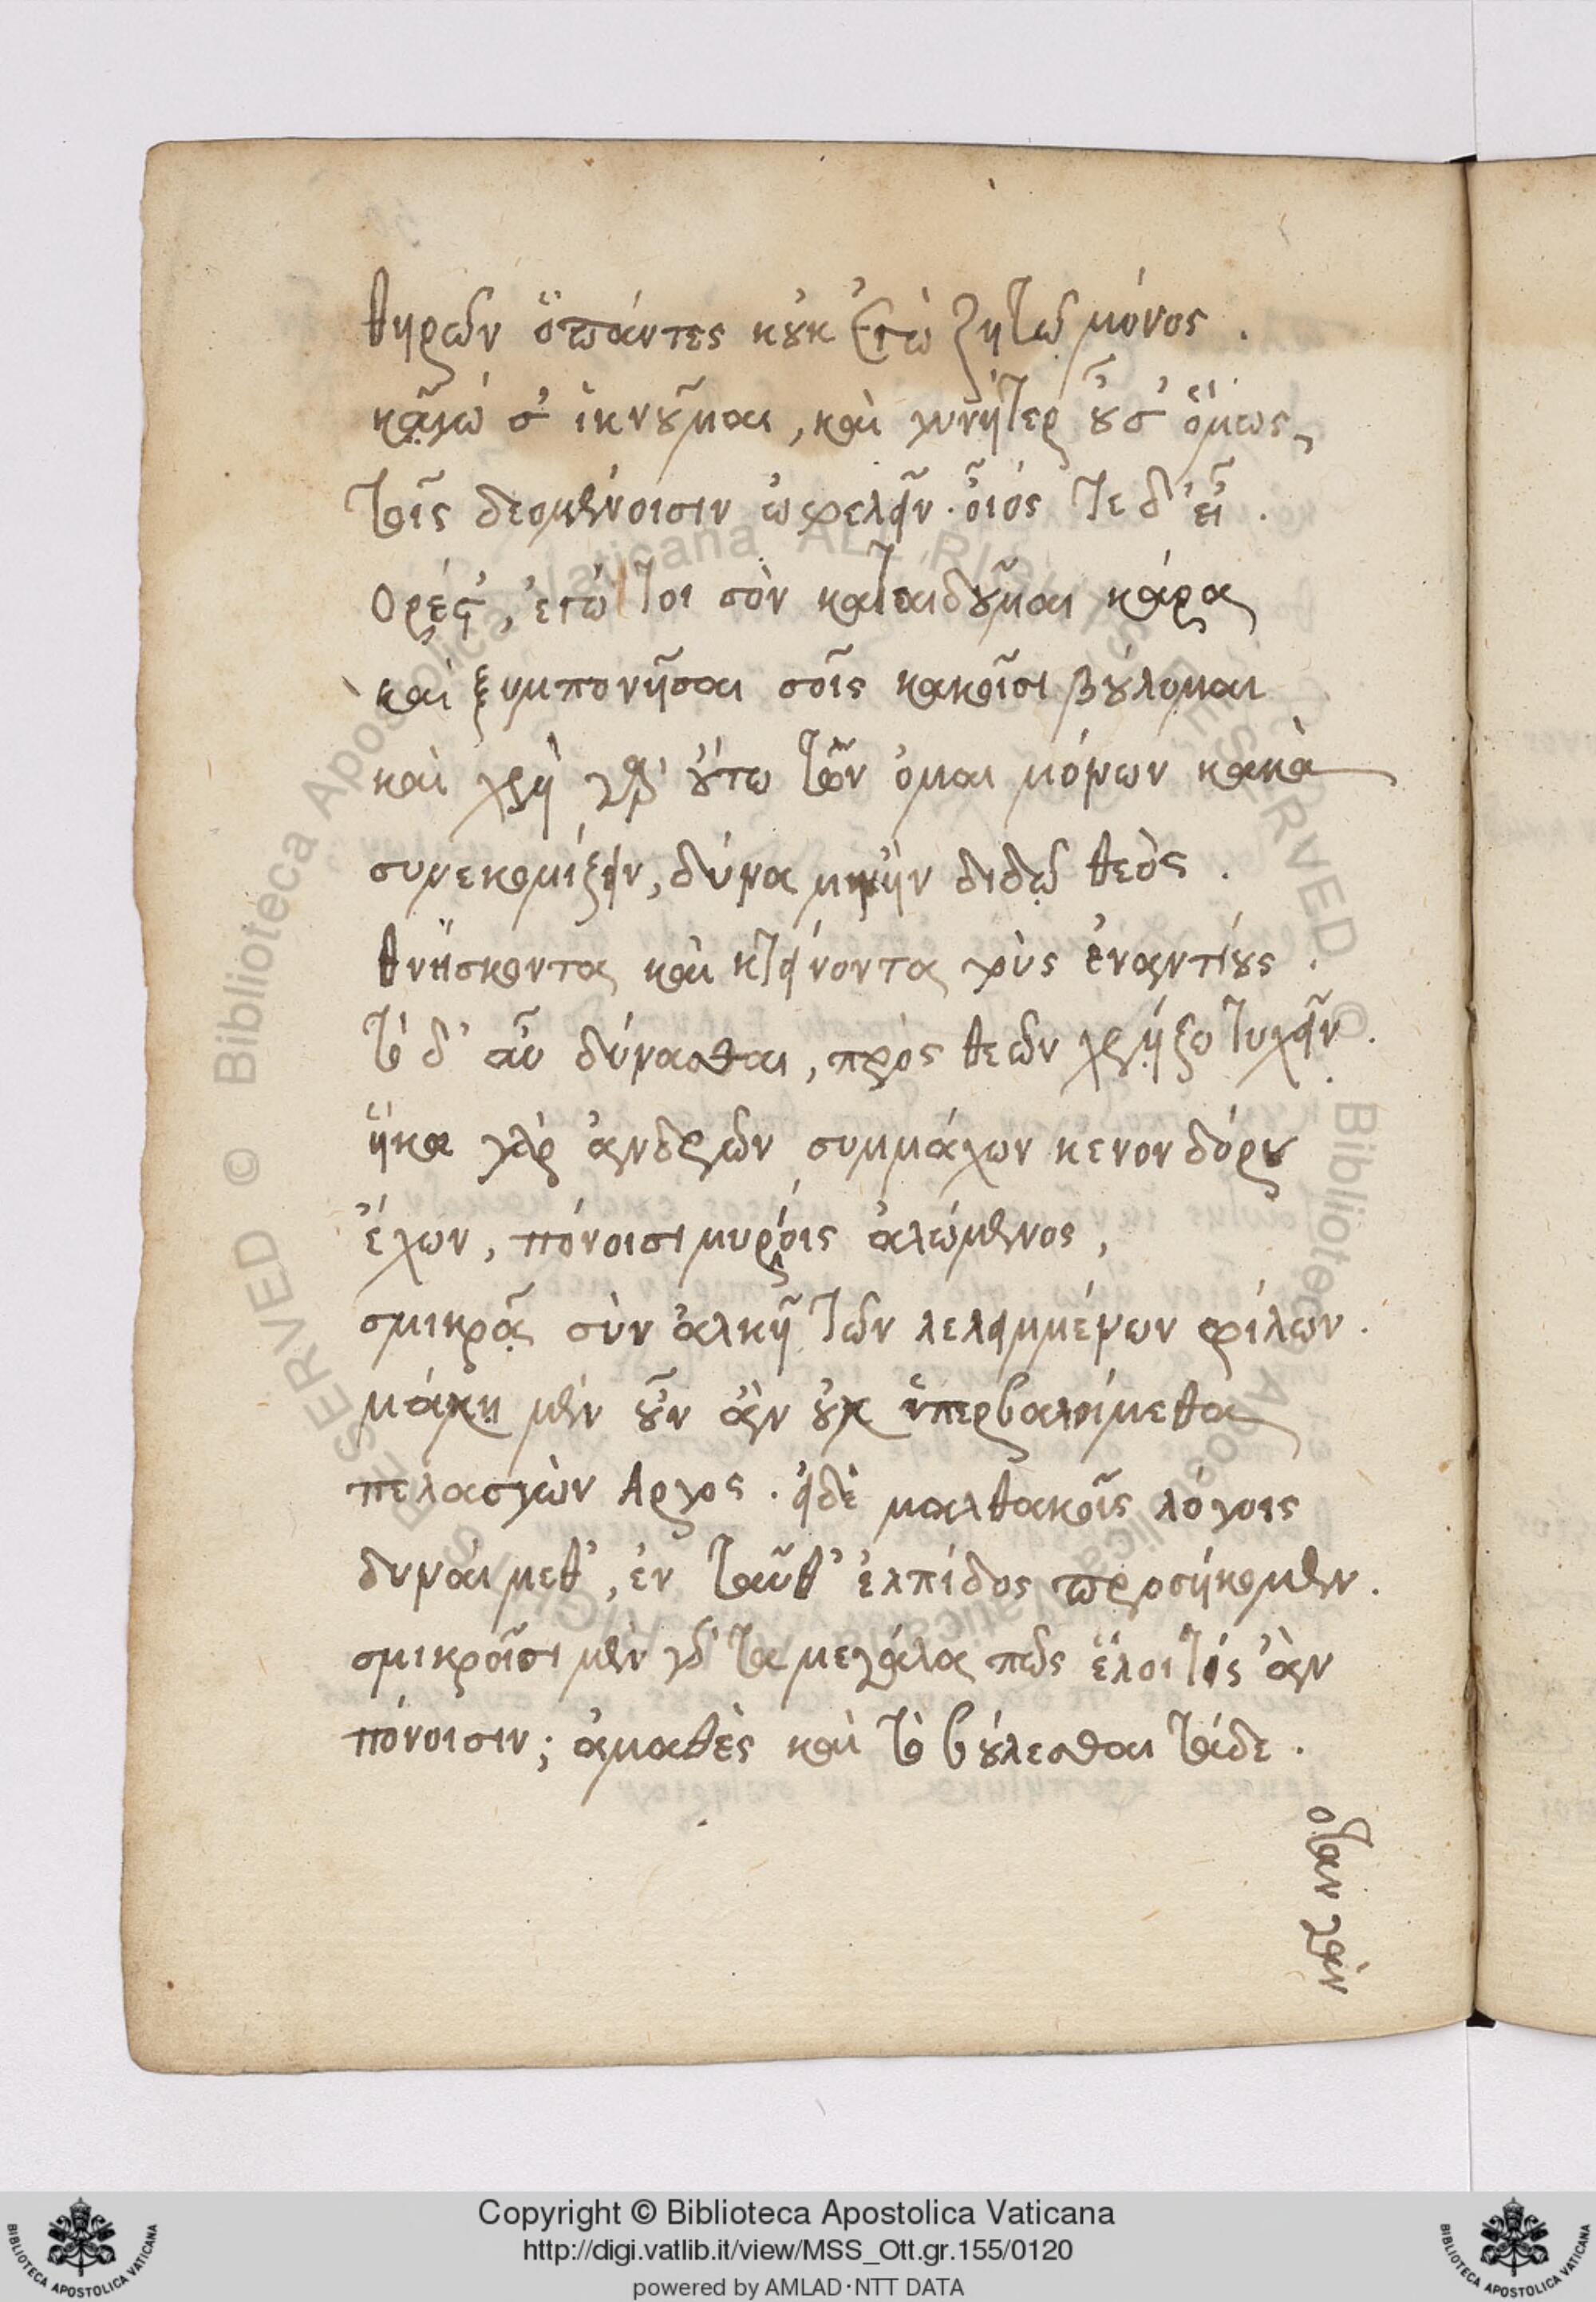 θηρῶν ὃ πάντες κοὐκ ἐγὼ ζητῶ μόνος.
κᾀγώ σ' ἱκνοῦμαι, καὶ γυνή περ οὖσ' ὅμως,
τοῖς δεομένοισιν ὠφελεῖν. οἷός τε δ' εἶ.
Ορέστ', ἐγώ τοι σὸν καταιδοῦμαι κάρα
καὶ ξυμπονῆσαι σοῖς κακοῖσι βούλομαι
καὶ χρὴ γὰρ οὕτω τῶν ὁμαιμόνων κακὰ
συνεκκομίζειν, δύναμιν ἢν διδῷ θεὸς.
θνήσκοντα καὶ κτείνοντα τοὺς ἐναντίους.
τὸ δ' αὖ δύνασθαι, πρὸς θεῶν χρῄζω τυχεῖν.
ἥκω γὰρ ἀνδρῶν συμμάχων κενον δόρυ
ἔχων, πόνοισι μυρίοις ἀλώμενος,
σμικρᾷ σὺν ἀλκῇ τῶν λελειμμένων φίλων.
μάχῃ μὲν οὖν ἂν οὐχ ὑπερβαλοίμεθα
πελασγὸν Αργος. εἰ δὲ μαλθακοῖς λόγοις
δυναίμεθ', ἐν ταῦθ' ἐλπίδος προσήκομεν.
σμικροῖσι μὲν γὰρ τα μεγάλα πῶς ἕλοι τίς ἂν
πόνοισιν; ἀμαθὲς καὶ τὸ βούλεσθαι τάδε.
οταν γὰρ
Copyright © Biblioteca Apostolica Vaticana
http://digi.vatlib.it/view/MSS_Ott.gr.155/0120
powered by AMLAD·NTT DATA